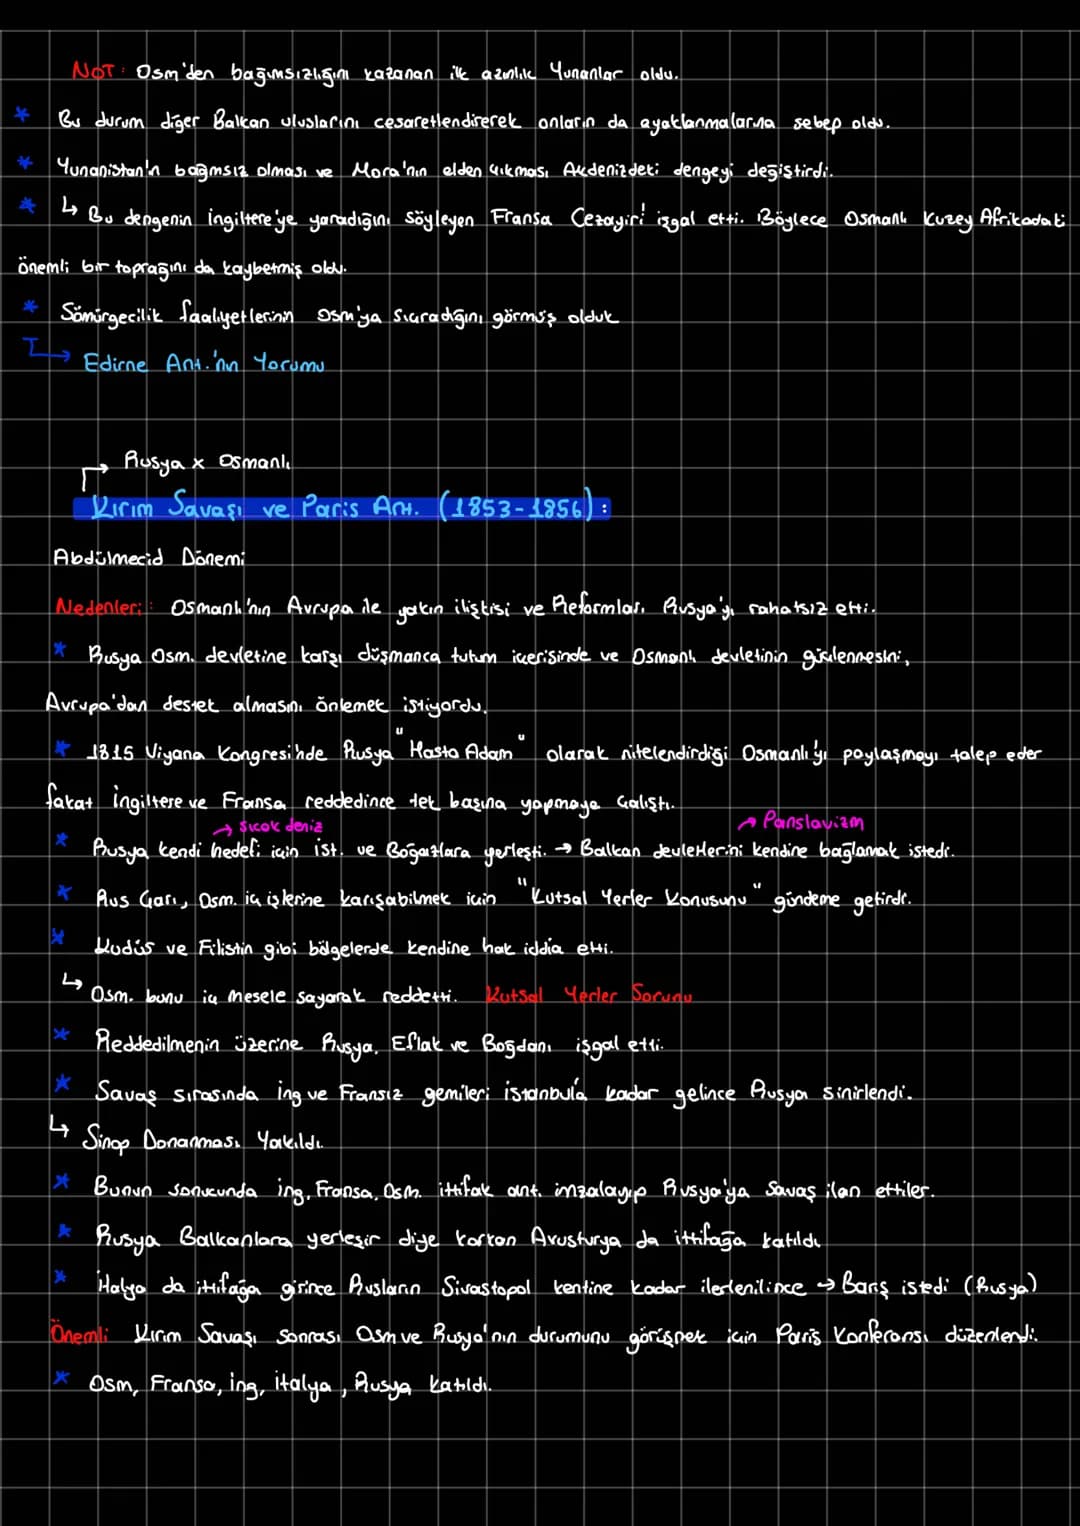 NOT: Osm'den bağımsızlığını kazanan ilk azınlık Yunanlar oldu.
* Bu durum diğer Balkan uluslarını cesaretlendirerek onların da ayaklanmalarına sebep oldu.
* Yunanistan'ın bağımsız olması ve Mora'nın elden çıkması Akdenizdeki dengeyi değiştirdi.
* ↳ Bu dengenin İngiltere'ye yaradığını söyleyen Fransa Cezayir'i işgal etti. Böylece Osmanlı Kuzey Afrikadaki
önemli bir toprağını da kaybetmiş oldu.
* Sömürgecilik faaliyetlerinin Osm'ya sıçradığını görmüş olduk
→ Edirne Ant.'nın Yorumu
→ Rusya x Osmanlı
Kırım Savaşı ve Paris Ant. (1853-1856):
Abdülmecid Dönemi
Nedenleri: Osmanlı'nın Avrupa ile yakın ilişkisi ve Reformları Rusya'yı rahatsız etti.
* Rusya Osm. devletine karşı düşmanca tutum içerisinde ve Osmanlı devletinin güçlenmesini,
Avrupa'dan destek almasını önlemek istiyordu.
* 1815 Viyana Kongresi'nde Rusya "Hasta Adam" olarak nitelendirdiği Osmanlı'yı paylaşmayı talep eder
fakat İngiltere ve Fransa reddedince tek başına yapmaya çalıştı.
→ Sıcak deniz → Panslavizm
* Rusya kendi hedefi için İst. ve Boğazlara yerleşti. → Balkan devletlerini kendine bağlamak istedi.
* Rus Çarı, Osm. iç işlerine karışabilmek için "Kutsal Yerler Konusunu" gündeme getirdi.
* Kudüs ve Filistin gibi bölgelerde kendine hak iddia etti.
↳ Osm. bunu iç mesele sayarak reddetti. Kutsal Yerler Sorunu
* Reddedilmenin üzerine Rusya, Eflak ve Boğdanı işgal etti.
* Savaş sırasında ing ve Fransız gemileri istanbul'a kadar gelince Rusya sinirlendi.
↳ Sinop Donanması Yakıldı.
* Bunun sonucunda ing, Fransa, Osm. ittifak ant. imzalayıp Rusya'ya Savaş ilan ettiler.
* Rusya Balkanlara yerleşir diye korkan Avusturya da ittifağa katıldı
* İtalya da ittifağa girince Rusların Sivastopol kentine kadar ilerlenilince → Barış istedi (Rusya)
Önemli Kırım Savaşı sonrası Osm ve Rusya'nın durumunu görüşmek için Paris Konferansı düzenlendi.
* Osm, Fransa, ing, italya, Rusya katıldı.